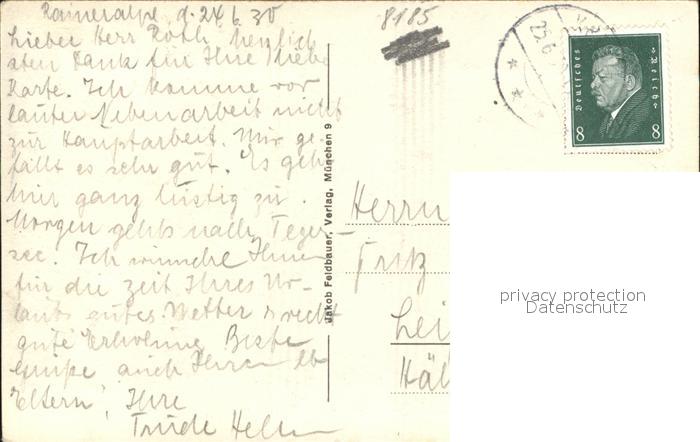 Raineralpe, d. 24.6.30
Lieber Herr Roth, herzlich-
sten Dank für Ihre liebe
Karte. Ich komme vor
lauter Nebenarbeit nicht
zur Hauptarbeit. Mir ge-
fällt es sehr gut. Es geht
hier ganz lustig zu.
Morgen gehts nach Teger-
see. Ich wünsche Ihnen
für die Zeit Ihres Ur-
laubs gutes Wetter & recht
gute Erholung. Beste
Grüße auch Ihren lb
Eltern, Ihre
Trude
8185
25.6.
Deutsches Reich
8 8
Jakob Feldbauer, Verlag, München 9
Herrn
Fritz
Lei
Häl
privacy protection
Datenschutz